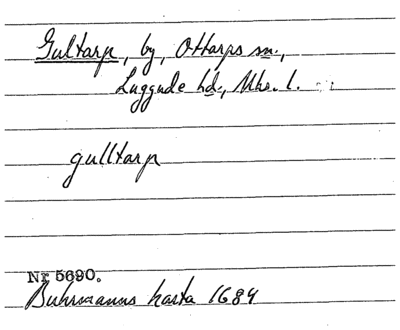 Gultarp, by, Ottarps sn.,
Luggude hd., Mhs. l.
gulltarp
Nr 5690.
Buhrmanns karta 1684